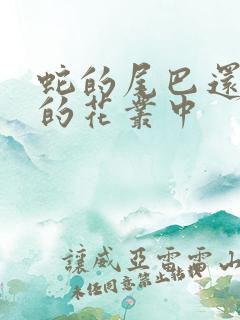 蛇的尾巴還
的花叢中
讓威亞雷雷山
未任同意禁止转携